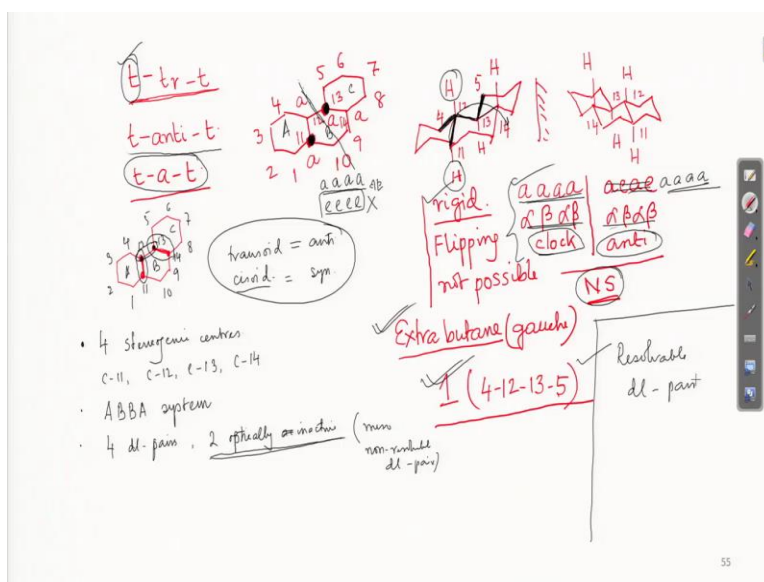 t-tr-t
t-anti-t
t-a-t
5 6 7 8 9 10 1 2 3 4
A B C
a a a a a
11 12 13 14
a a a a
e e e e X
H
5
4 12 13 14 11
H H
H
H H
13 12
14 11
H H
rigid.
Flipping
not possible
a a a a
α β α β
clock
aeae a a a a
α β α β
anti
NS
5 6 7 8 9 10 1 2 3 4
A B C
13 14 11
transoid = anti
cisoid = syn.
Extra butane (gauche)
1 (4-12-13-5)
Resolvable
dl-pair
• 4 stereogenic centres
C-11, C-12, C-13, C-14
• ABBA system
• 4 dl-pairs, 2 optically inactive (meso
non-resolvable
dl-pair)
55